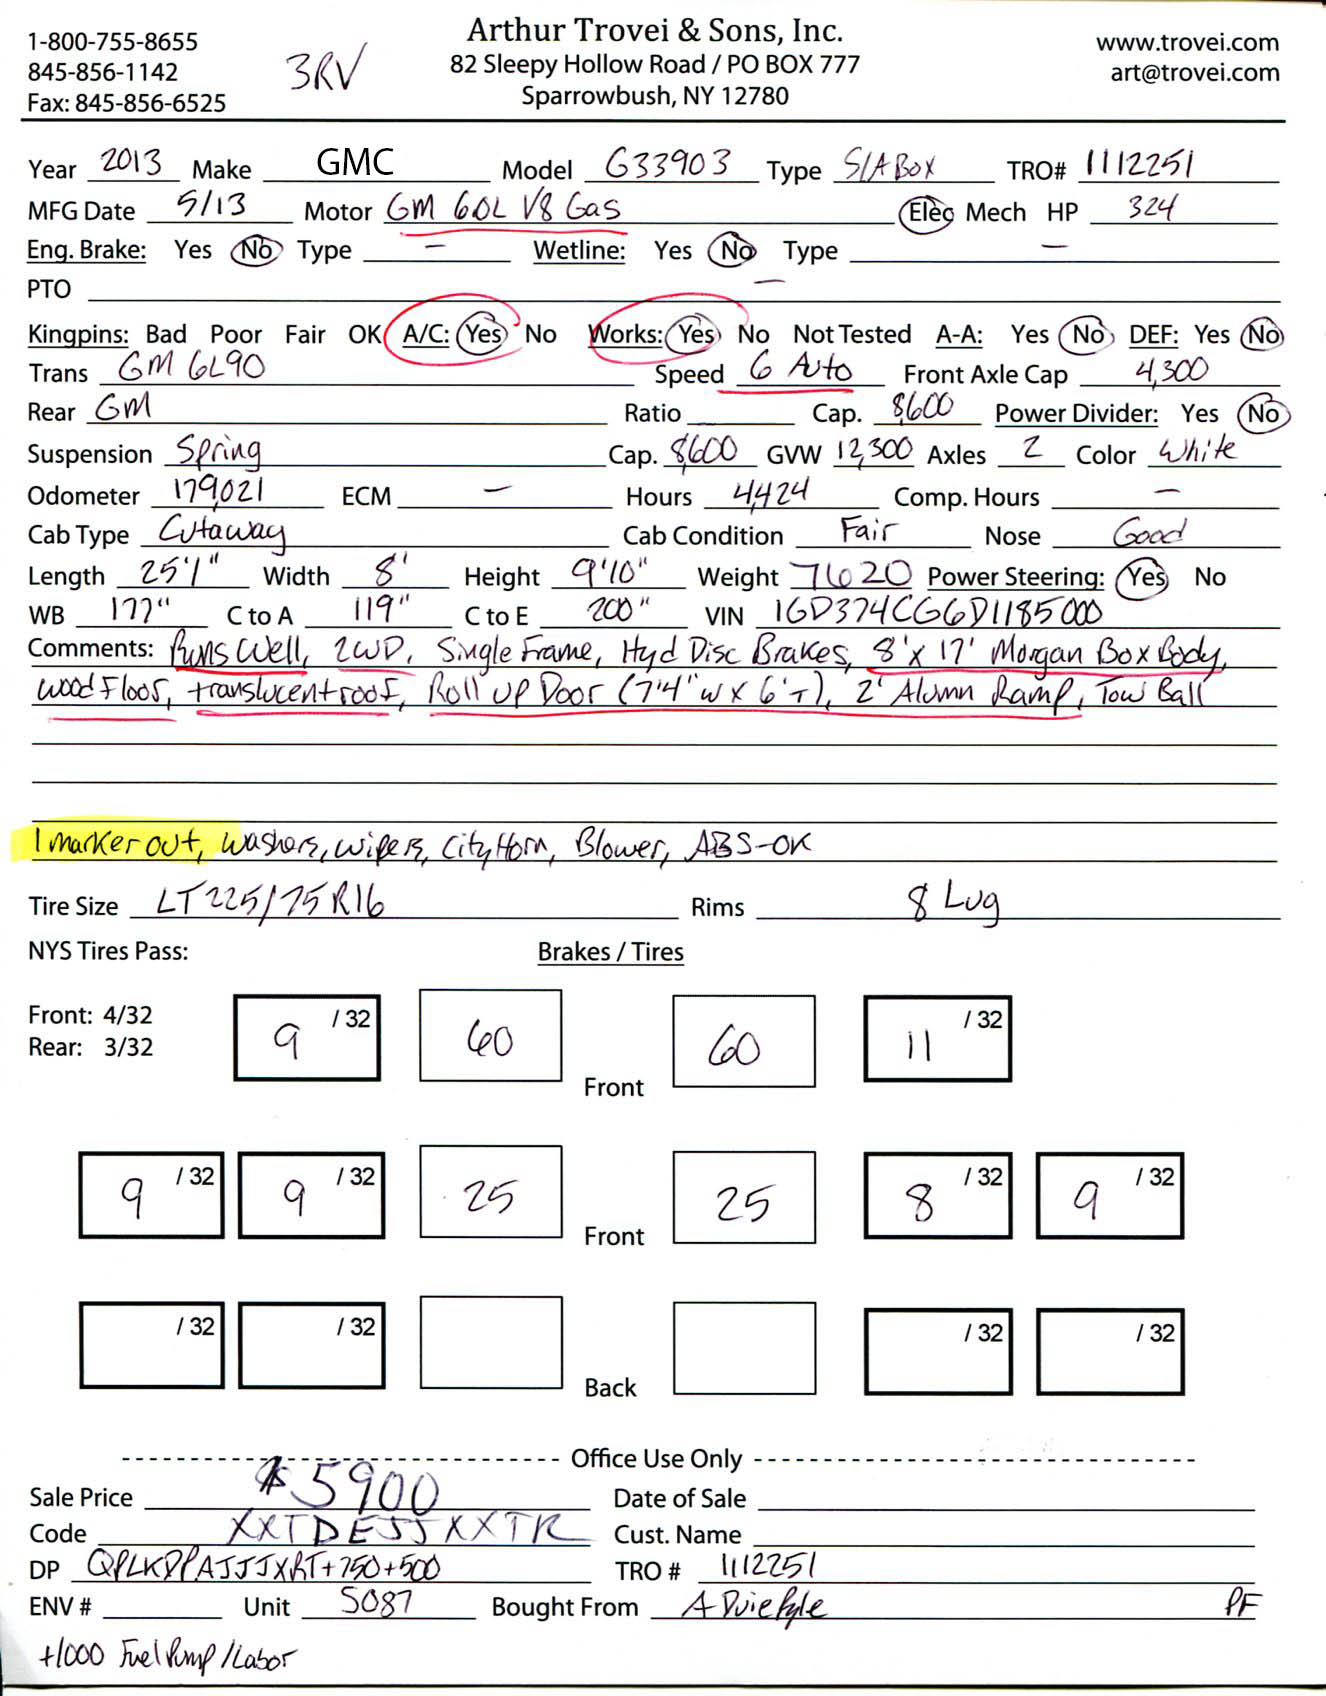 1-800-755-8655
845-856-1142
Fax: 845-856-6525
3RV
Arthur Trovei & Sons, Inc.
82 Sleepy Hollow Road / PO BOX 777
Sparrowbush, NY 12780
www.trovei.com
art@trovei.com
Year 2013 Make GMC Model G33903 Type S/A Box TRO# 1112251
MFG Date 5/13 Motor GM 6.0L V8 Gas Elec Mech HP 324
Eng. Brake: Yes No Type – Wetline: Yes No Type –
PTO –
Kingpins: Bad Poor Fair OK A/C: Yes No Works: Yes No Not Tested A-A: Yes No DEF: Yes No
Trans GM 6L90 Speed 6 Auto Front Axle Cap 4,300
Rear GM Ratio Cap. 8,600 Power Divider: Yes No
Suspension Spring Cap. 8,600 GVW 12,300 Axles 2 Color White
Odometer 179,021 ECM – Hours 4,424 Comp. Hours –
Cab Type Cutaway Cab Condition Fair Nose Good
Length 25'1" Width 8' Height 9'10" Weight 7620 Power Steering: Yes No
WB 177" C to A 119" C to E 200" VIN 1GD374CG6D1185000
Comments: Runs Well, 2WD, Single Frame, Hyd Disc Brakes, 8' x 17' Morgan Box Body,
wood Floor, translucent roof, Roll up Door (7'4"w x 6'T), 2' Alumn Ramp, Tow Ball
1 marker out, washers, wipers, City Horn, Blower, ABS-OK
Tire Size LT225/75R16 Rims 8 Lug
NYS Tires Pass: Brakes / Tires
Front: 4/32
Rear: 3/32
9 /32 60 Front 60 11 /32
9 /32 9 /32 25 Front 25 8 /32 9 /32
/32 /32 Back /32 /32
Office Use Only
Sale Price $5900 Date of Sale
Code XXTDEJJXXTR Cust. Name
DP QPLKDPAJJJXRT+750+500 TRO # 1112251
ENV # Unit 5087 Bought From A Duie Pyle PF
+1000 Fuel Pump/Labor